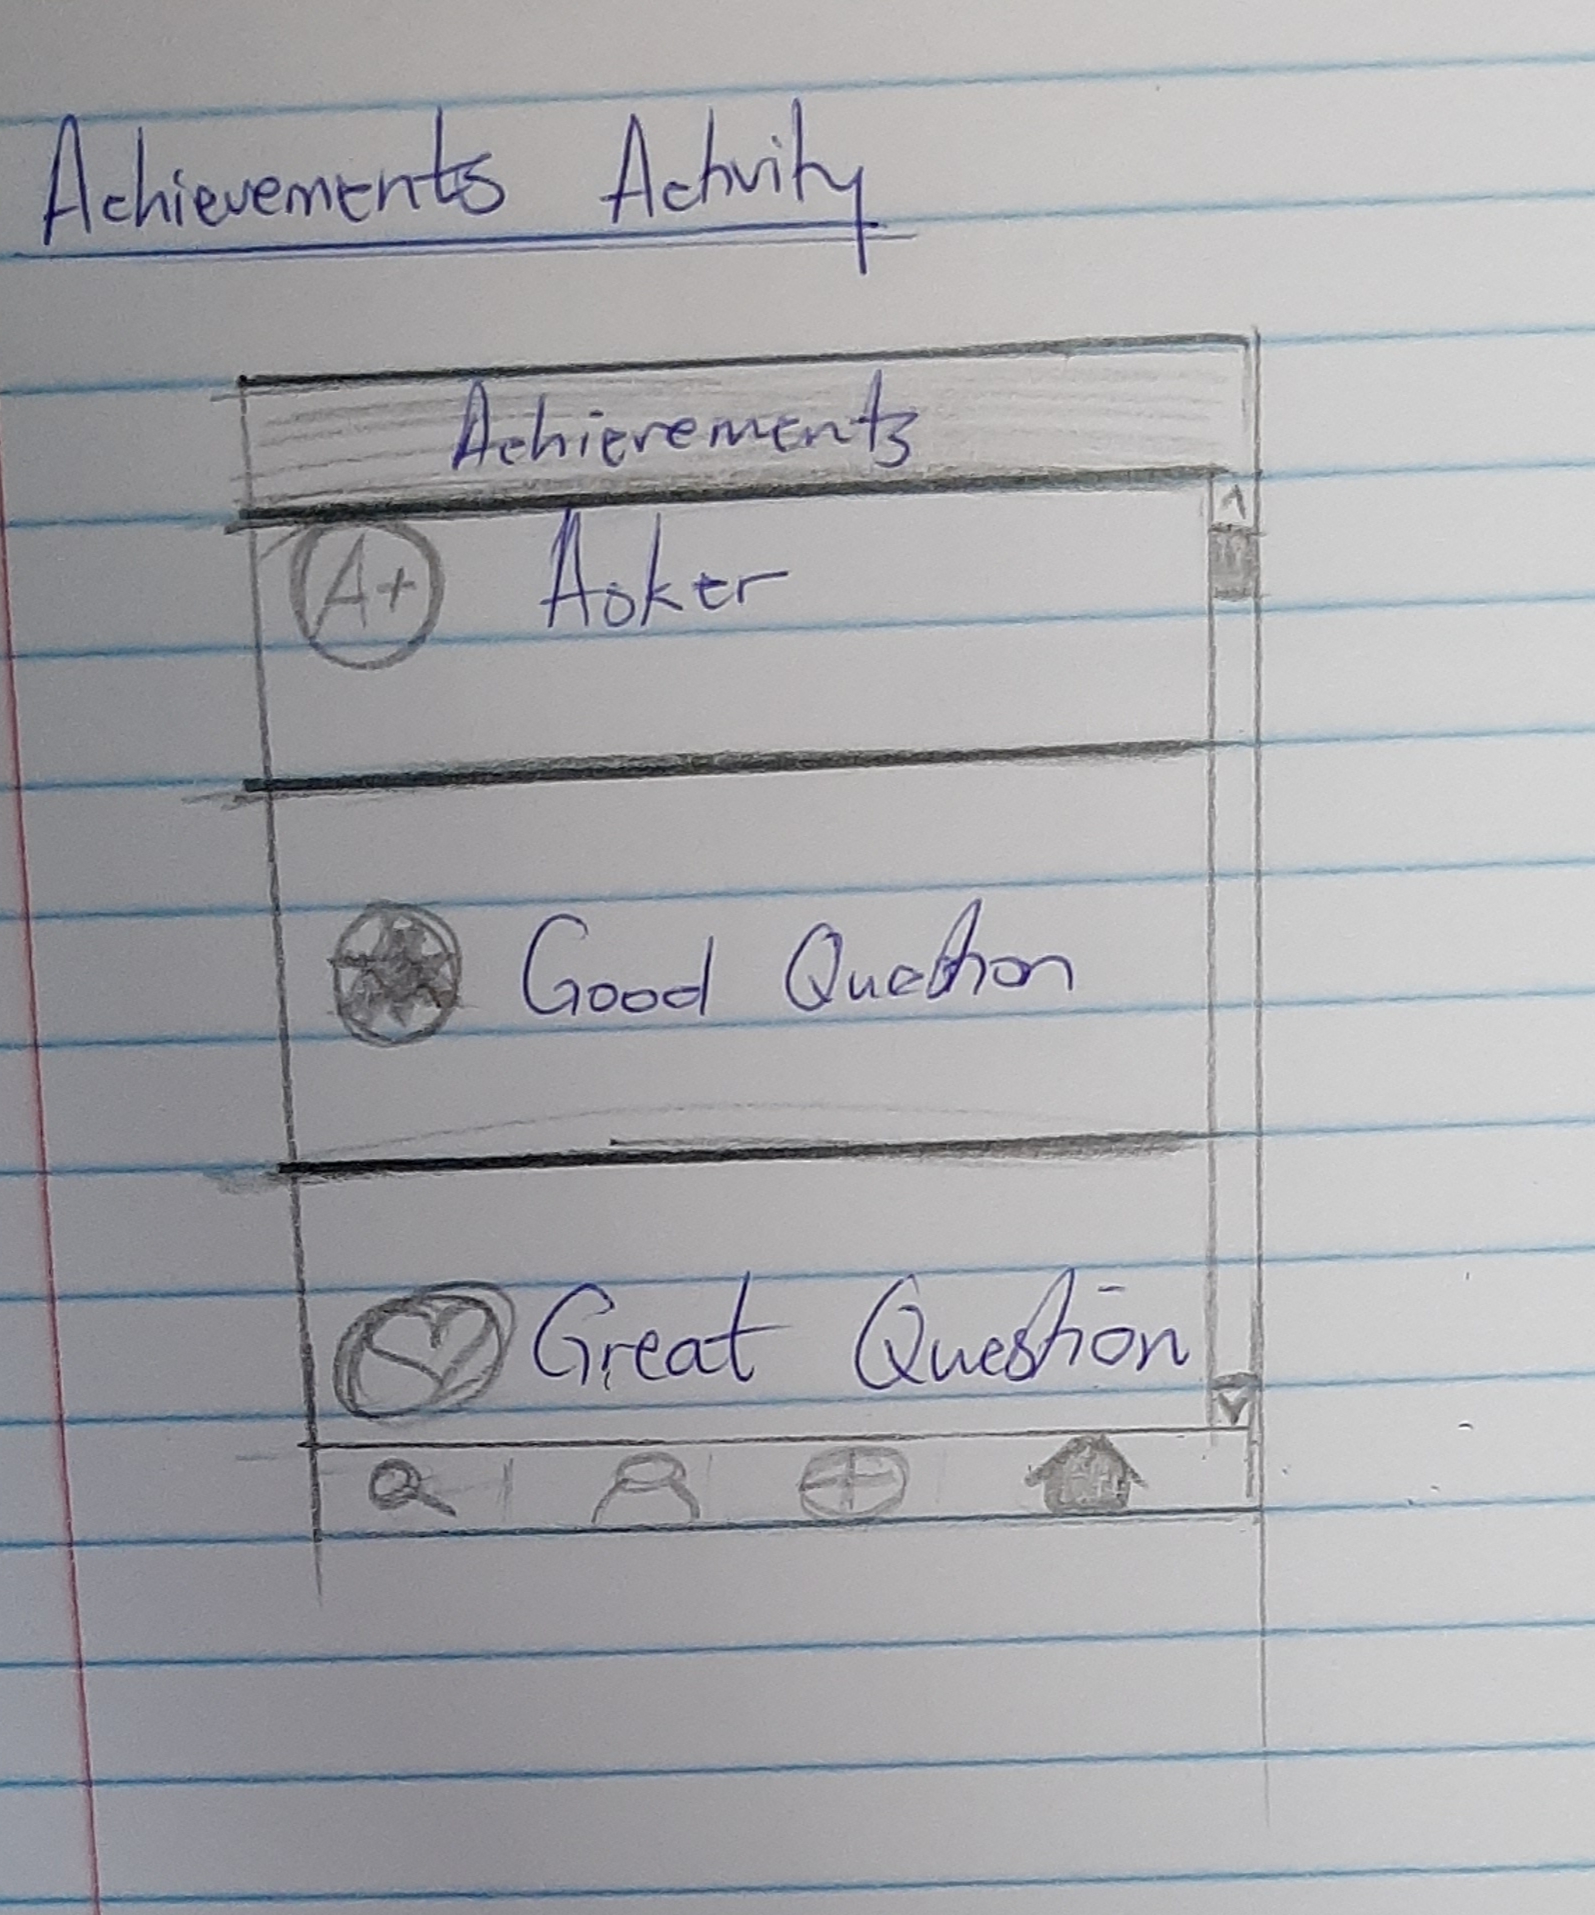 Achievements Activity
Achievements
A+ Asker
Good Question
Great Question